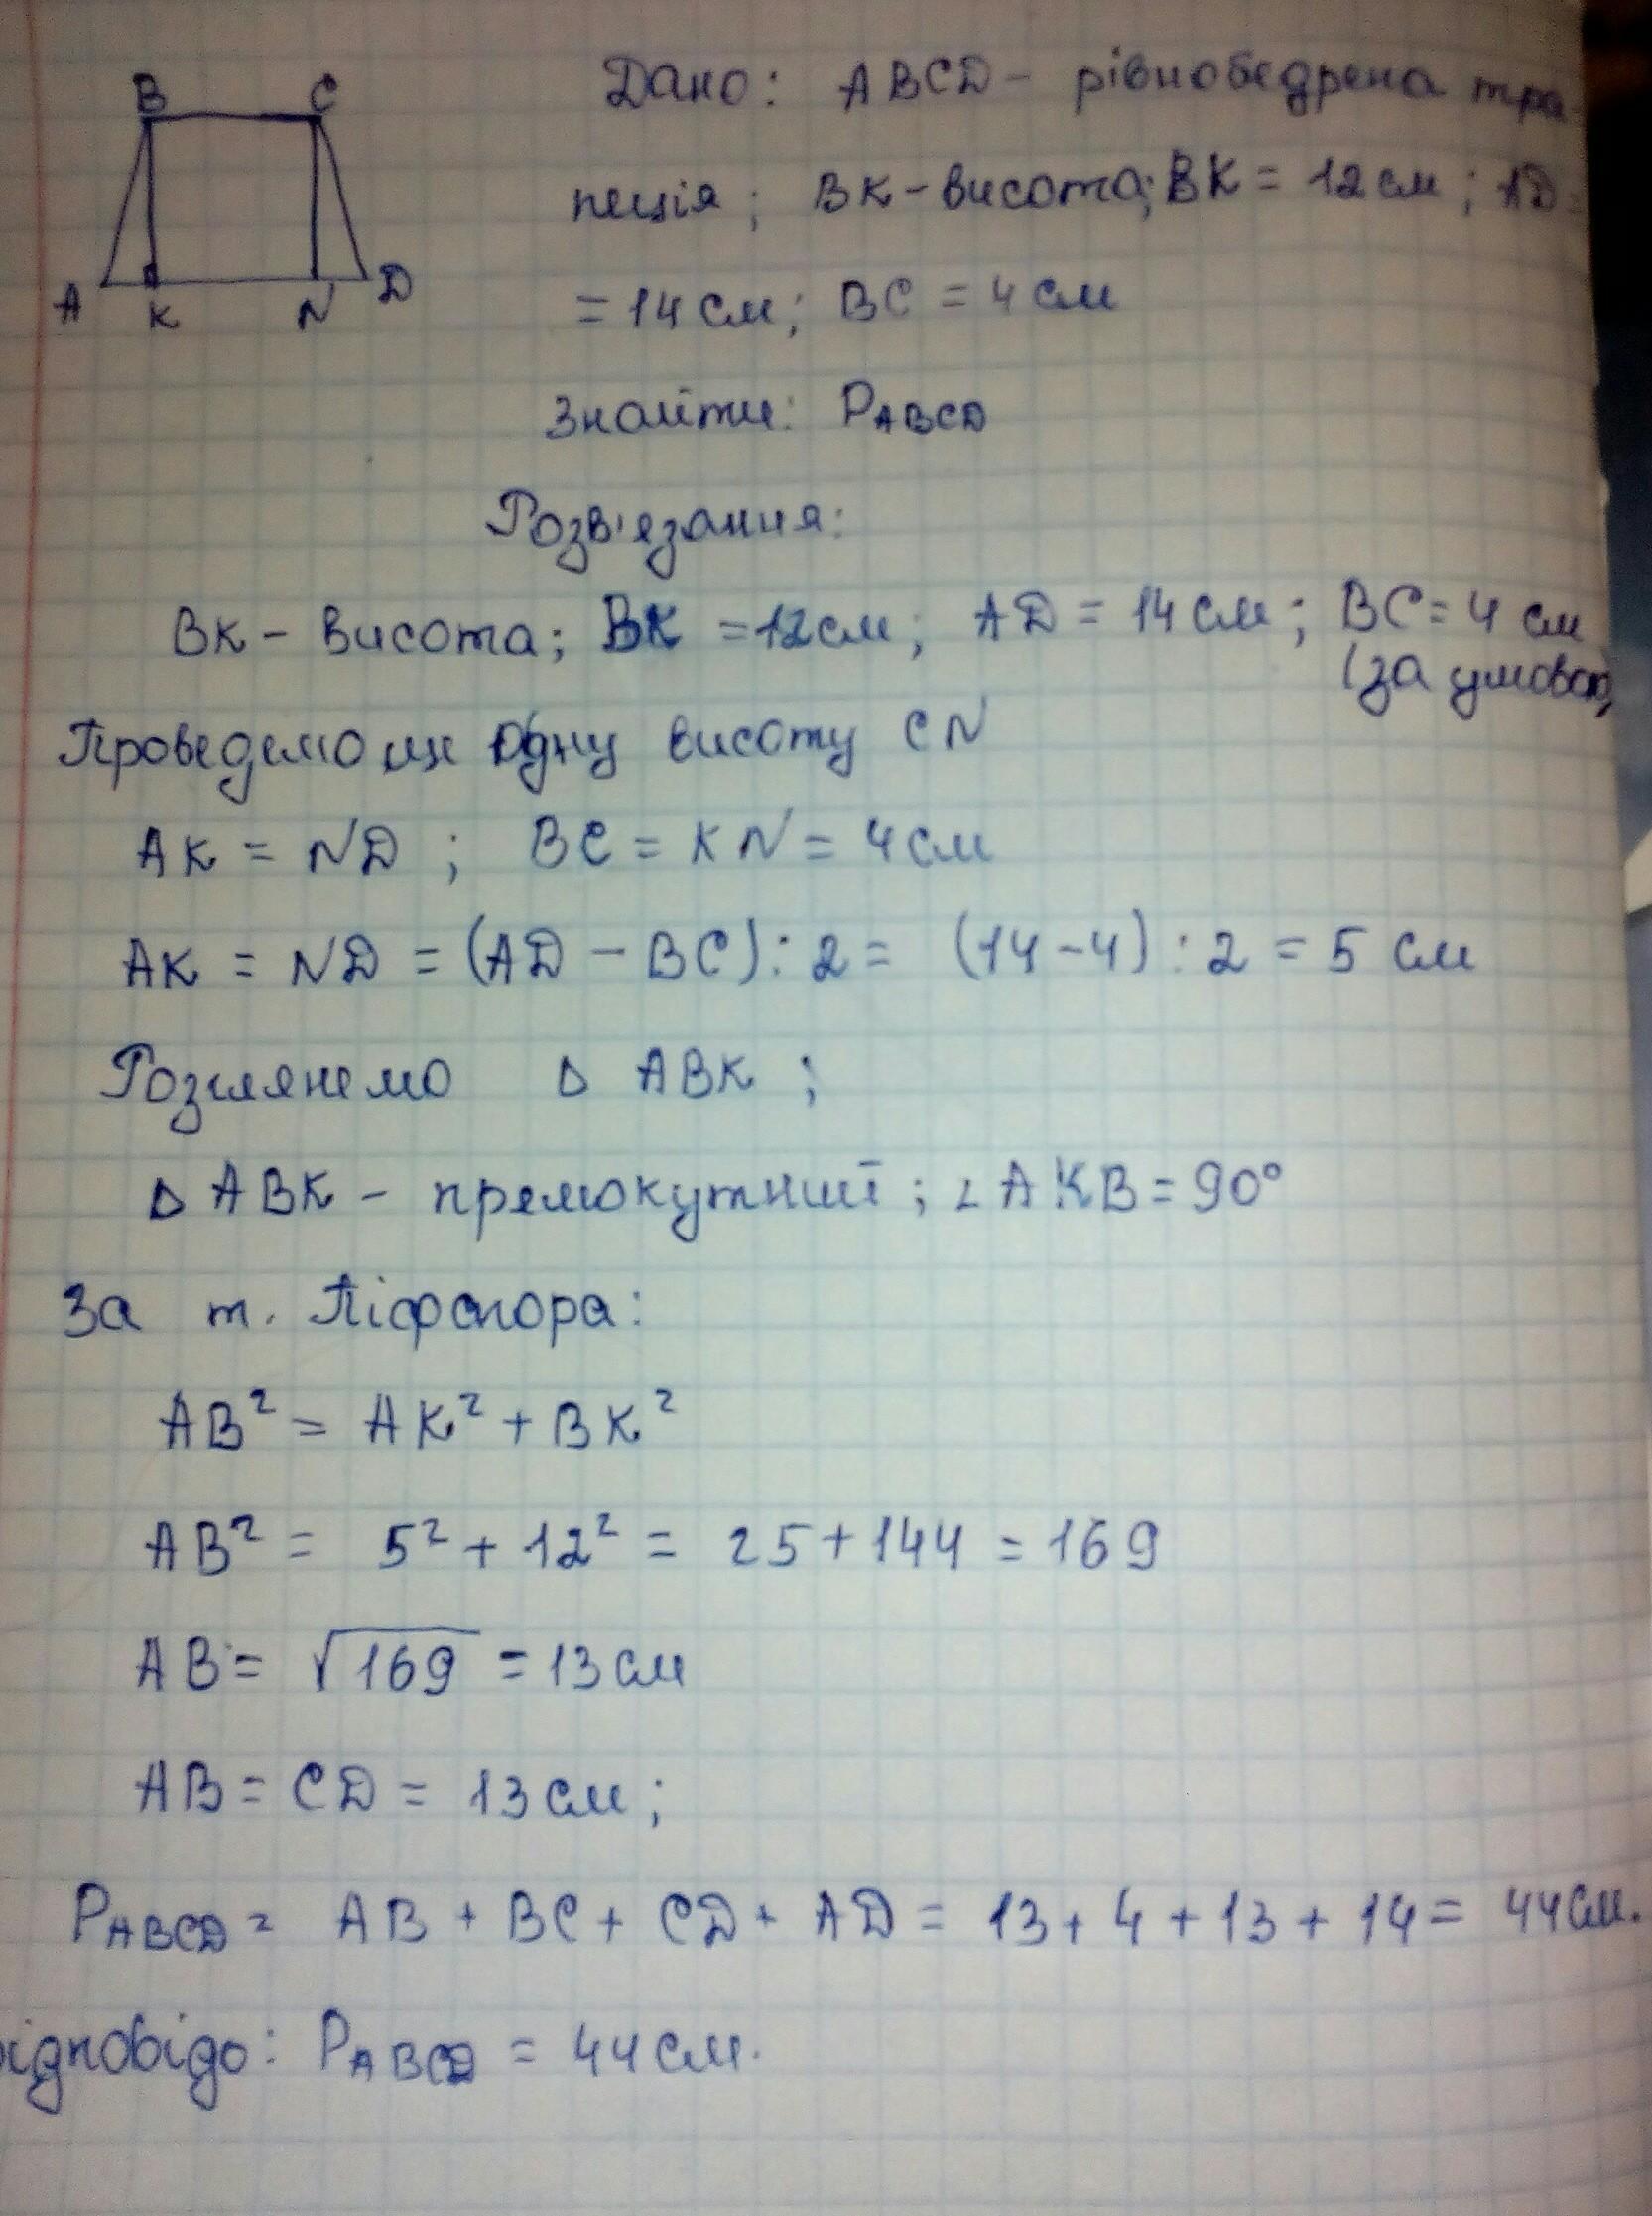 B C
A K N D
Дано: ABCD - рівнобедрена тра
пеція; BK - висота; BK = 12 см; AD =
= 14 см; BC = 4 см
Знайти: PABCD
Розв'язання:
BK - висота; BK = 12 см; AD = 14 см; BC = 4 см
(за умовою)
Проведемо ще одну висоту CN
AK = ND; BC = KN = 4 см
AK = ND = (AD - BC) : 2 = (14 - 4) : 2 = 5 см
Розглянемо △ ABK;
△ ABK - прямокутний; ∠AKB = 90°
За т. Піфагора:
AB² = AK² + BK²
AB² = 5² + 12² = 25 + 144 = 169
AB = √169 = 13 см
AB = CD = 13 см;
PABCD = AB + BC + CD + AD = 13 + 4 + 13 + 14 = 44 см.
ідповідь: PABCD = 44 см.